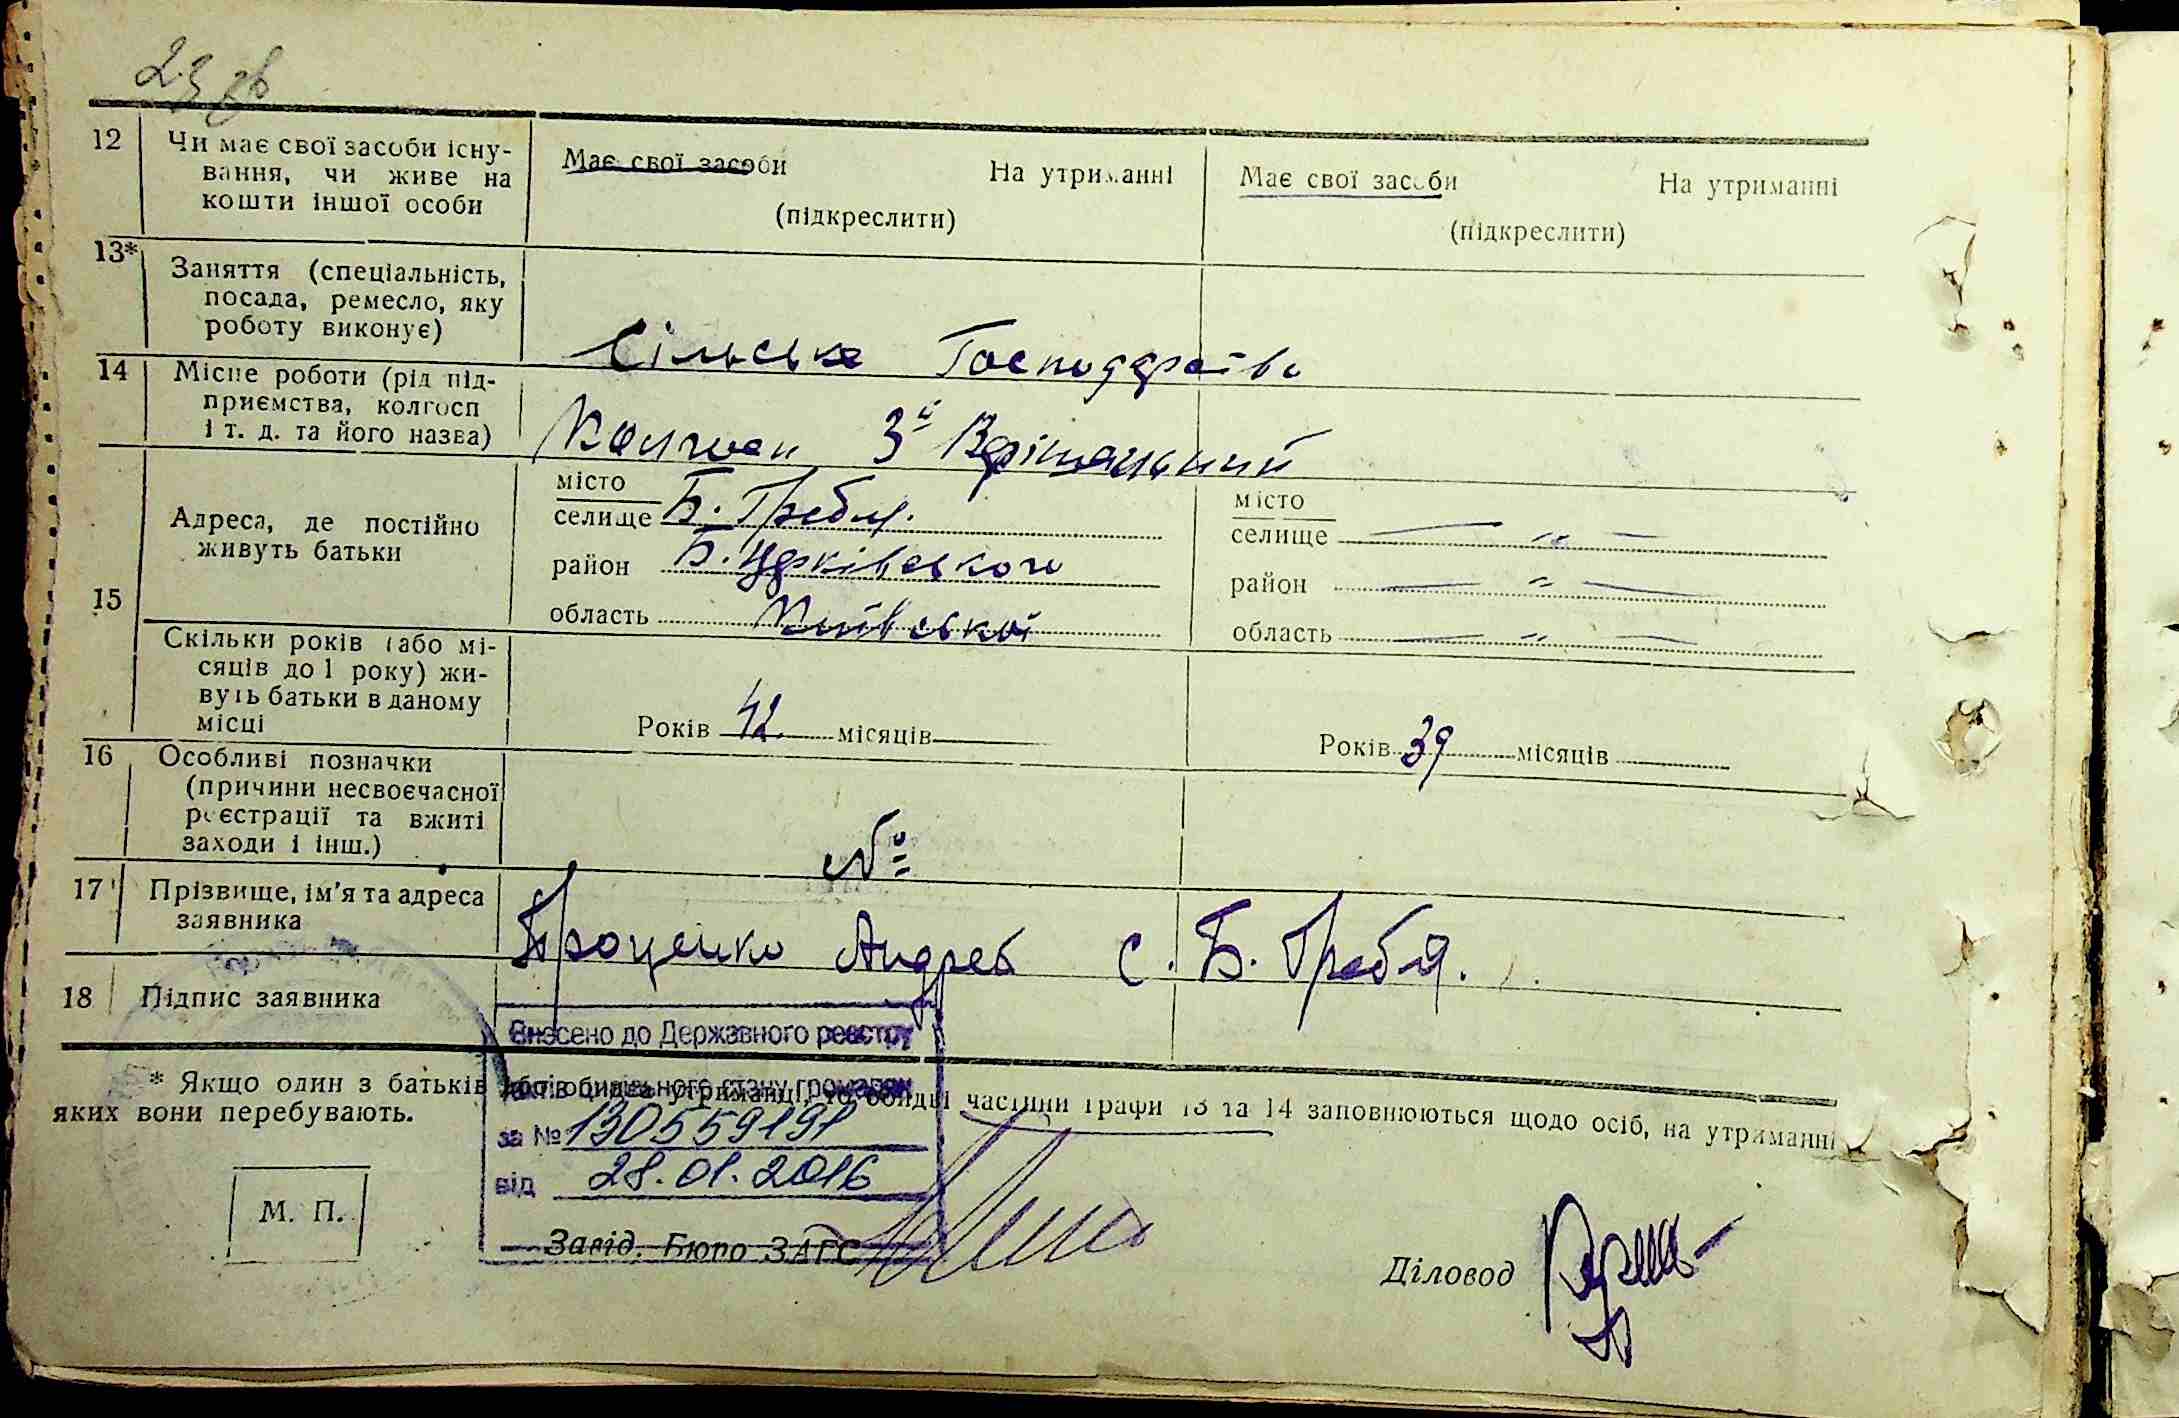 23 зв
12 Чи має свої засоби існу-
вання, чи живе на
кошти іншої особи
Має свої засоби На утриманні
(підкреслити)
Має свої засоби На утриманні
(підкреслити)
13* Заняття (спеціальність,
посада, ремесло, яку
роботу виконує)
Сільське Господарство
14 Місце роботи (рід під-
приємства, колгосп
і т. д. та його назва)
Колгосп 3й Вирішальний
15 Адреса, де постійно
живуть батьки
місто
селище Б. Гребля.
район Б. Церківського
область Київської
місто
селище — " —
район — " —
область — " —
Скільки років (або мі-
сяців до 1 року) жи-
вуть батьки в даному
місці
Років 42. місяців
Років 39 місяців
16 Особливі позначки
(причини несвоєчасної
реєстрації та вжиті
заходи і інш.)
№
17 Прізвище, ім'я та адреса
заявника
Проценко Андрей с. Б. Гребля.
18 Підпис заявника
Внесено до Державного реєстру
актів цивільного стану громадян
за № 130559191
від 28.01.2016
* Якщо один з батьків або обидва на утриманні, то обидві частини графи 13 та 14 заповнюються щодо осіб, на утриманні
яких вони перебувають.
М. П.
Завід. Бюро ЗАГС
Діловод